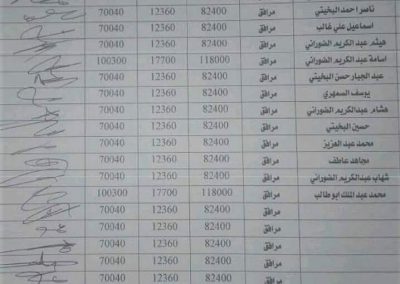 ناصر احمد البخيتي مرافق 82400 12360 70040
اسماعيل علي غالب مرافق 82400 12360 70040
هيثم عبد الكريم الضوراني مرافق 82400 12360 70040
اسامة عبد الكريم الضوراني مرافق 118000 17700 100300
عبد الجبار حسن البخيتي مرافق 82400 12360 70040
يوسف السمهري مرافق 82400 12360 70040
هشام عبدالكريم الضوراني مرافق 82400 12360 70040
حسين البخيتي مرافق 82400 12360 70040
محمد عبد العزيز مرافق 82400 12360 70040
مجاهد عاطف مرافق 82400 12360 70040
شهاب عبدالكريم الضوراني مرافق 82400 12360 70040
محمد عبد الملك ابو طالب مرافق 118000 17700 100300
مرافق 82400 12360 70040
مرافق 82400 12360 70040
مرافق 82400 12360 70040
مرافق 82400 12360 70040
مرافق 82400 12360 70040